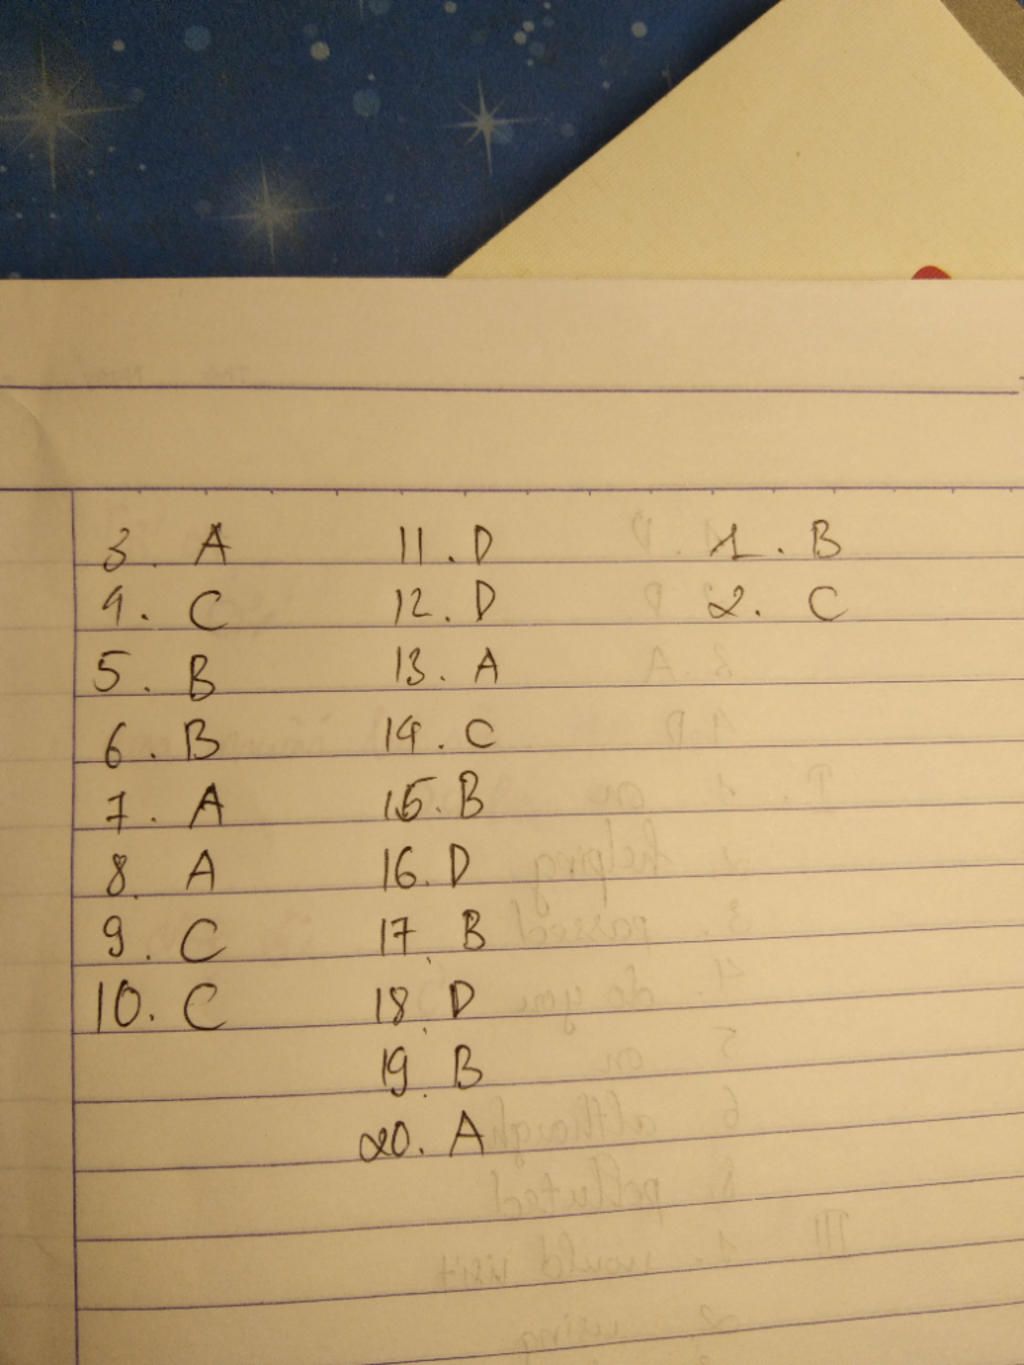 3. A
4. C
5. B
6. B
7. A
8. A
9. C
10. C
11. D
12. D
13. A
14. C
15. B
16. D
17. B
18. D
19. B
20. A
1. B
2. C